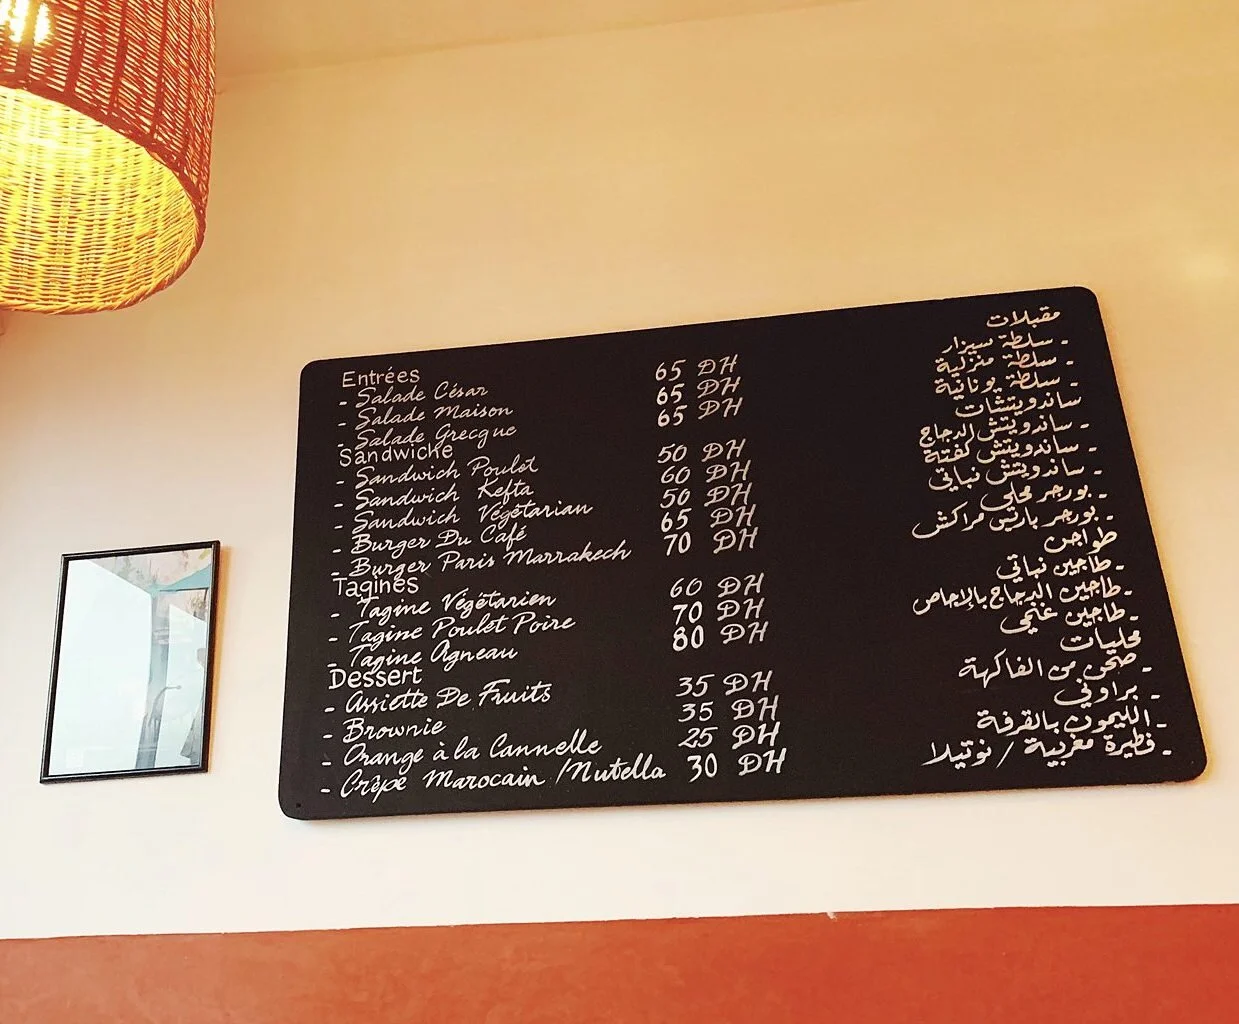 Entrées
- Salade César 65 DH
- Salade Maison 65 DH
- Salade Grecque 65 DH
Sandwiche
- Sandwich Poulet 50 DH
- Sandwich Kefta 60 DH
- Sandwich Végétarian 50 DH
- Burger Du Café 65 DH
- Burger Paris Marrakech 70 DH
Tagines
- Tagine Végétarien 60 DH
- Tagine Poulet Poire 70 DH
- Tagine Agneau 80 DH
Dessert
- Assiette De Fruits 35 DH
- Brownie 35 DH
- Orange à la Cannelle 25 DH
- Crêpe Marocain / Nutella 30 DH
مقبلات
- سلطة سيزار
- سلطة منزلية
- سلطة يونانية
ساندويتشات
- ساندويتش الدجاج
- ساندويتش كفتة
- ساندويتش نباتي
- بورجر محلي
- بورجر باريس مراكش
طواجن
- طاجين نباتي
- طاجين الدجاج بالإجاص
- طاجين غنمي
محليات
- صحن من الفاكهة
- براوني
- الليمون بالقرفة
- فطيرة مغربية / نوتيلا